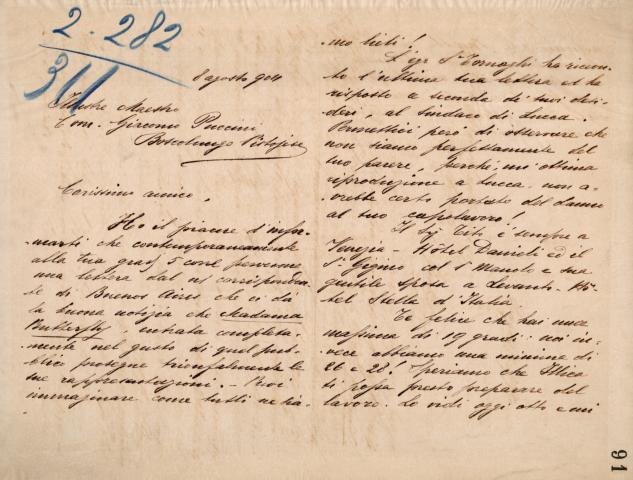 2. 282
311
8 agosto 904
Illustre Maestro
Com. Giacomo Puccini
Boscolungo Pistojese
Carissimo amico,
Ho il piacere d'infor-
marti che contemporaneamente
alla tua 5 corr. pervenne
una lettera dal ns/ corrisponden-
te di Buenos Aires che ci dà
la buona notizia che Madama
Butterfly, entrata completa-
mente nel gusto di quel pub-
blico prosegue trionfalmente le
sue rappresentazioni. - Puoi
immaginare come tutti ne sia-
mo lieti!
L'egr. Sr Tornaghi ha ricevu-
to l'ultima tua lettera ed ha
risposto a seconda de' tuoi desi-
deri, al Sindaco di Lucca.
Permettici però di osservare che
non siamo perfettamente del
tuo parere, perchè, un'ottima
riproduzione a Lucca non a-
vrebbe certo portato del danno
al tuo capolavoro!
Il Sig. Tito è sempre a
Venezia - Hôtel Danieli ed il
Sr Gigino col Sr Manolo e sua
gentile sposa a Levanto - Hô-
tel Stella d'Italia.
Te felice che hai una
massima di 19 gradi: noi in-
vece abbiamo una minima di
26 e 28! Speriamo che Illica
ti possa presto preparare del
lavoro. Lo vidi oggi otto e mi
91